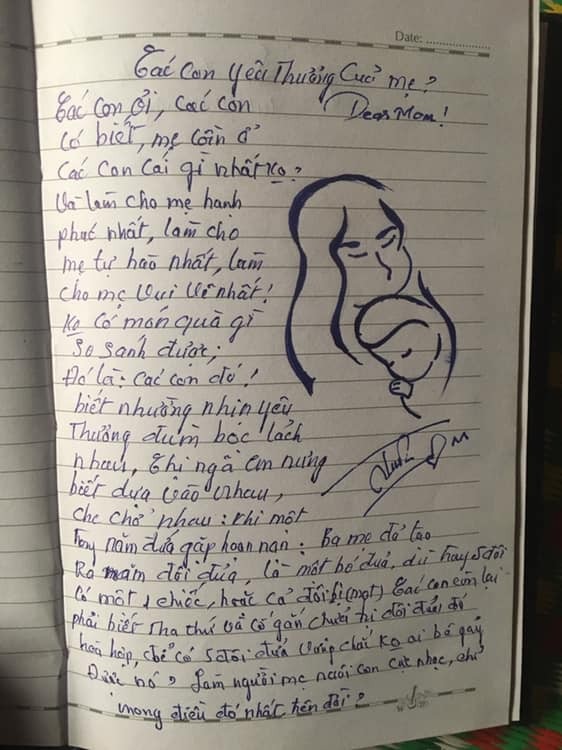 Date:
Các con yêu Thưởng Cuả mẹ?
Các con ơi, các con
Dear Mom!
Có biết, mẹ cần ở
Các con cái gì nhất ko?
Và làm cho mẹ hạnh
phúc nhất, làm cho
mẹ tự hào nhất, làm
cho mẹ vui vẽ nhất!
Ko có món quà gì
So sánh được;
Đó là: các con đó!
biết nhường nhịn yêu
Thưởng đùm bóc lách
nhau, Chị ngã em nưng
biết dựa vào nhau,
che chở nhau: khi một
hay năm đứa gặp hoạn nạn: Ba mẹ đả tạo
Ra năm đôi đủa, là một bó đủa, dù hay 5 đôi
Có một chiếc, hoặc cả đôi bị (mọt) Các con còn lại
phải biết tha thứ và cố gắn chuổi đôi đủa đó
hoà hợp, để có 5 đôi đủa vững chắi ko ai bẻ gảy
Được nó? Làm người mẹ nuôi con cực nhọc, chỉ
mong điều đó nhất trên đời?